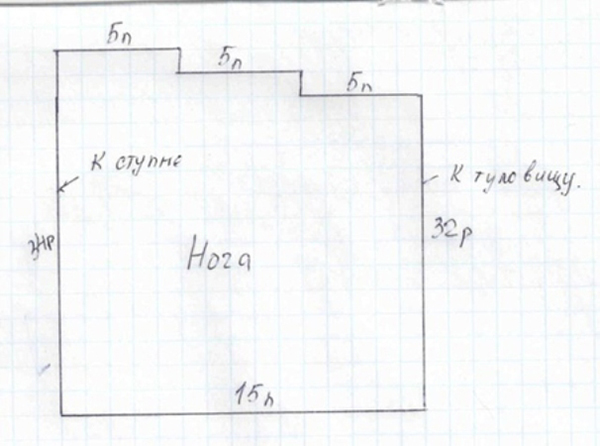 5п
5п
5п
К ступне
К туловищу.
32р
Нога
15п